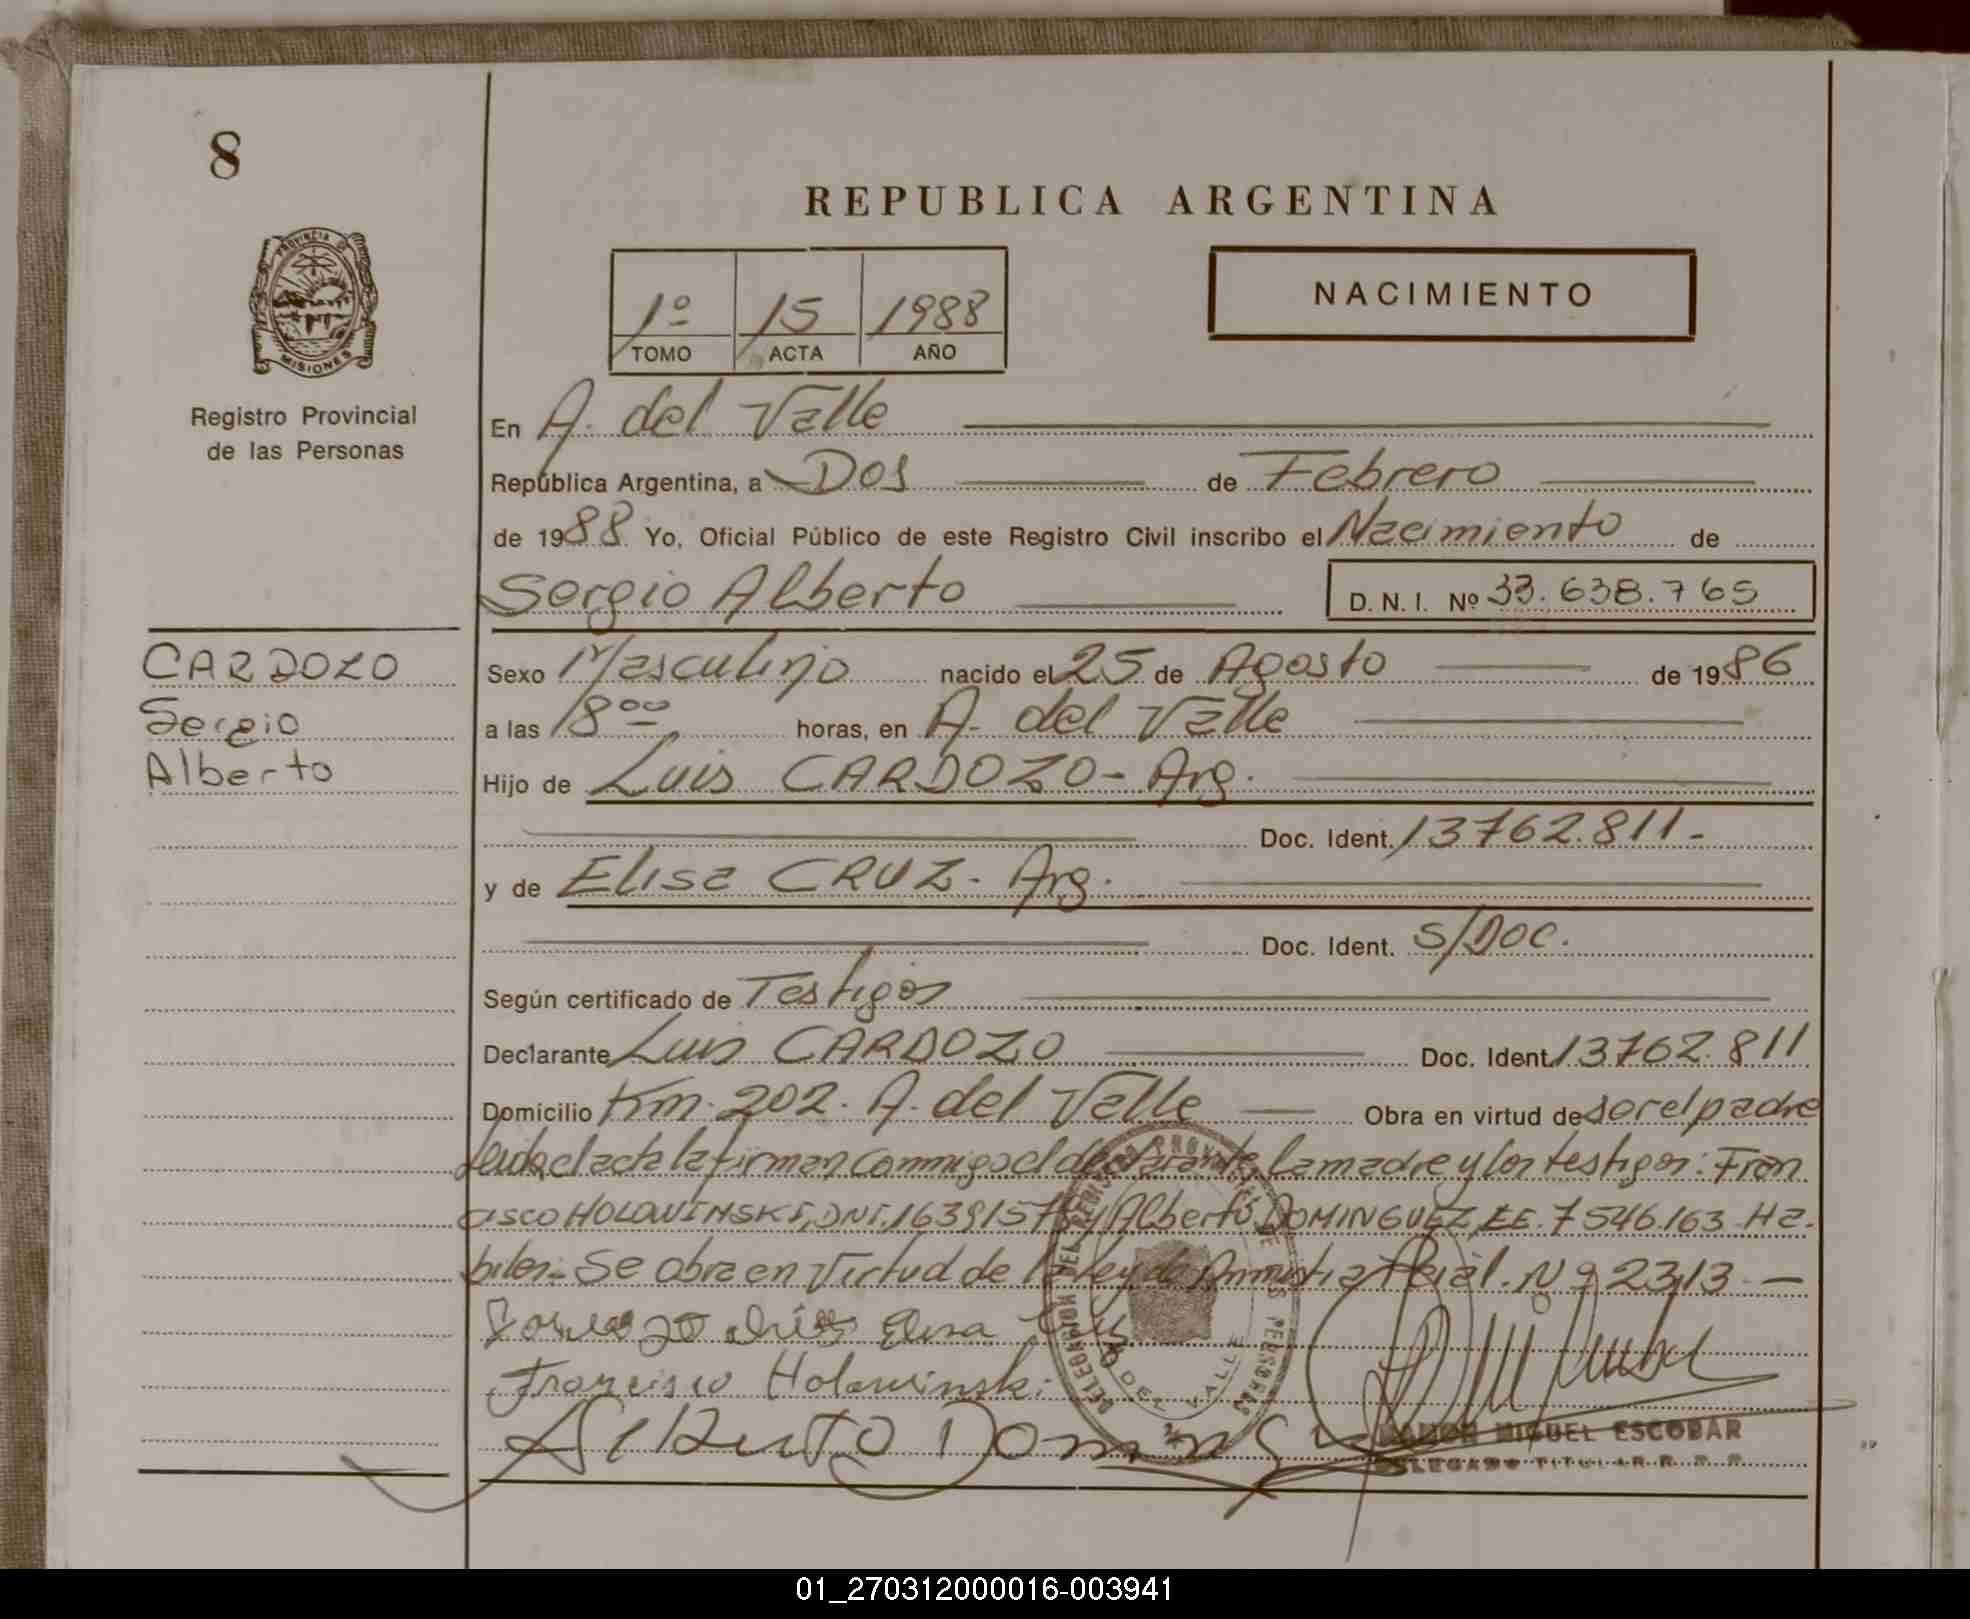 8
REPUBLICA ARGENTINA
PROVINCIA DE
MISIONES
Registro Provincial
de las Personas
1º 15 1988
TOMO ACTA AÑO
NACIMIENTO
En A. del Valle
República Argentina, a Dos de Febrero
de 1988 Yo, Oficial Público de este Registro Civil inscribo el Nacimiento de
Sergio Alberto D. N. I. Nº 33.638.765
CARDOZO
Sergio
Alberto
Sexo Masculino nacido el 25 de Agosto de 1986
a las 18 ºº horas, en A. del Valle
Hijo de Luis CARDOZO - Arg.
Doc. Ident. 13762.811-
y de Elisa CRUZ - Arg.
Doc. Ident. S/Doc.
Según certificado de Testigos
Declarante Luis CARDOZO Doc. Ident. 13.762.811
Domicilio Km. 202. A. del Valle Obra en virtud de ser el padre
leida el acta la firman conmigo el declarante, la madre y los testigos: Fran
cisco HOLOVINSKI, DNI. 1639157 y Alberto DOMINGUEZ, LE. 7546.163 Ha-
biles.- Se obra en virtud de la ley de Amnistia Pcial. Nº 2313 -
Elisa
Francisco Holowinski
Alberto Doming
RAMON MIGUEL ESCOBAR
DELEGADO TITULAR R. P. P.
DELEGACION DEL REGISTRO PROVINCIAL DE LAS PERSONAS
A. DEL VALLE
01_270312000016-003941